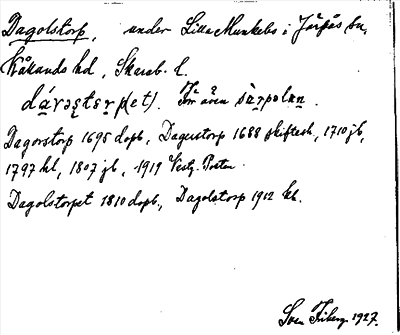 Dagolstorp, under Lilla Munkebo i Järpås sn,
Kållands hd, Skarab. l.
dárəstərp(et). För även sàrpəlan.
Dagorstorp 1695 dopb, Dagerstorp 1688 skiftesh, 1710 jb,
1797 hl, 1807 jb, 1919 Vestg. Posten.
Dagolstorpet 1810 dopb., Dagolstorp 1912 kb.
Sven Friberg 1927.